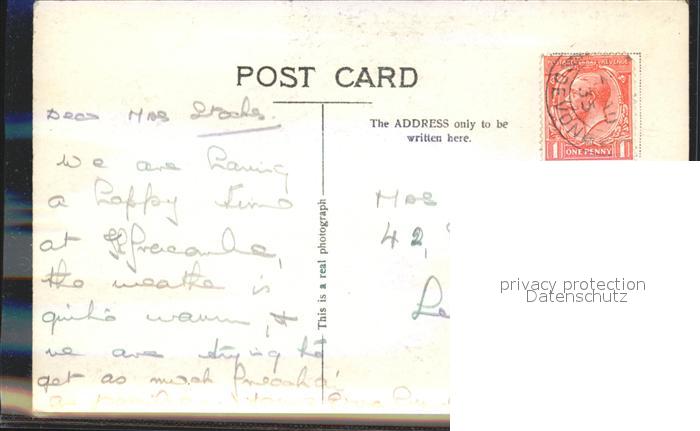 POST CARD
Dear Mrs
The ADDRESS only to be
written here.
We are having
a happy time
at Ilfracombe,
the weathe is
quite warm, &
we are trying to
get as much
This is a real photograph
Mrs
42,
Le
DEVON
33
POSTAGE REVENUE
1 ONE PENNY 1
privacy protection
Datenschutz